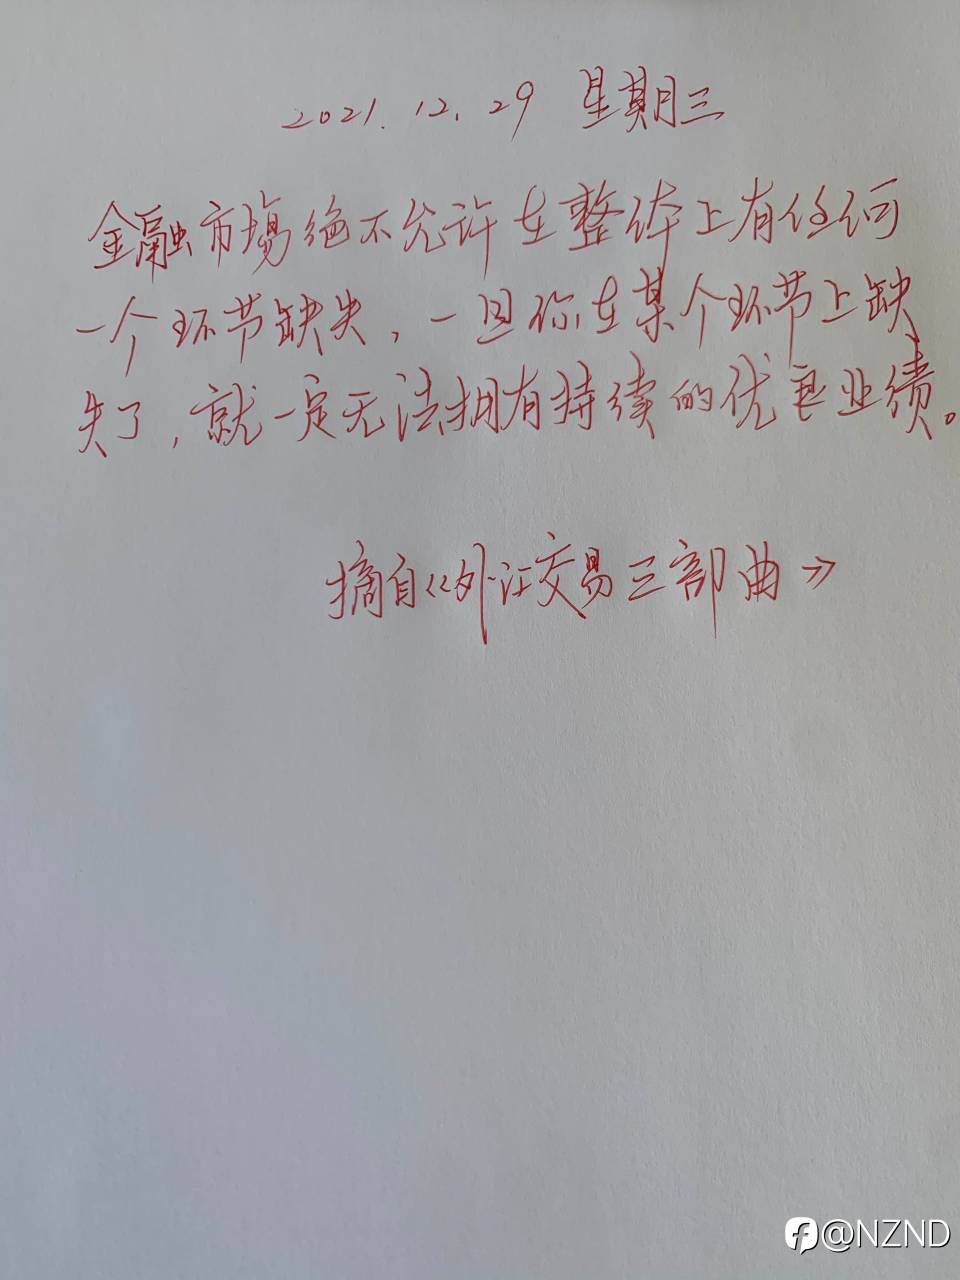 2021.12.29 星期三
金融市場绝不允许在整体上有任何
一个环节缺失，一旦你在某个环节上缺
失了，就一定无法拥有持续的优良业绩。
摘自《外汇交易三部曲》
@NZND